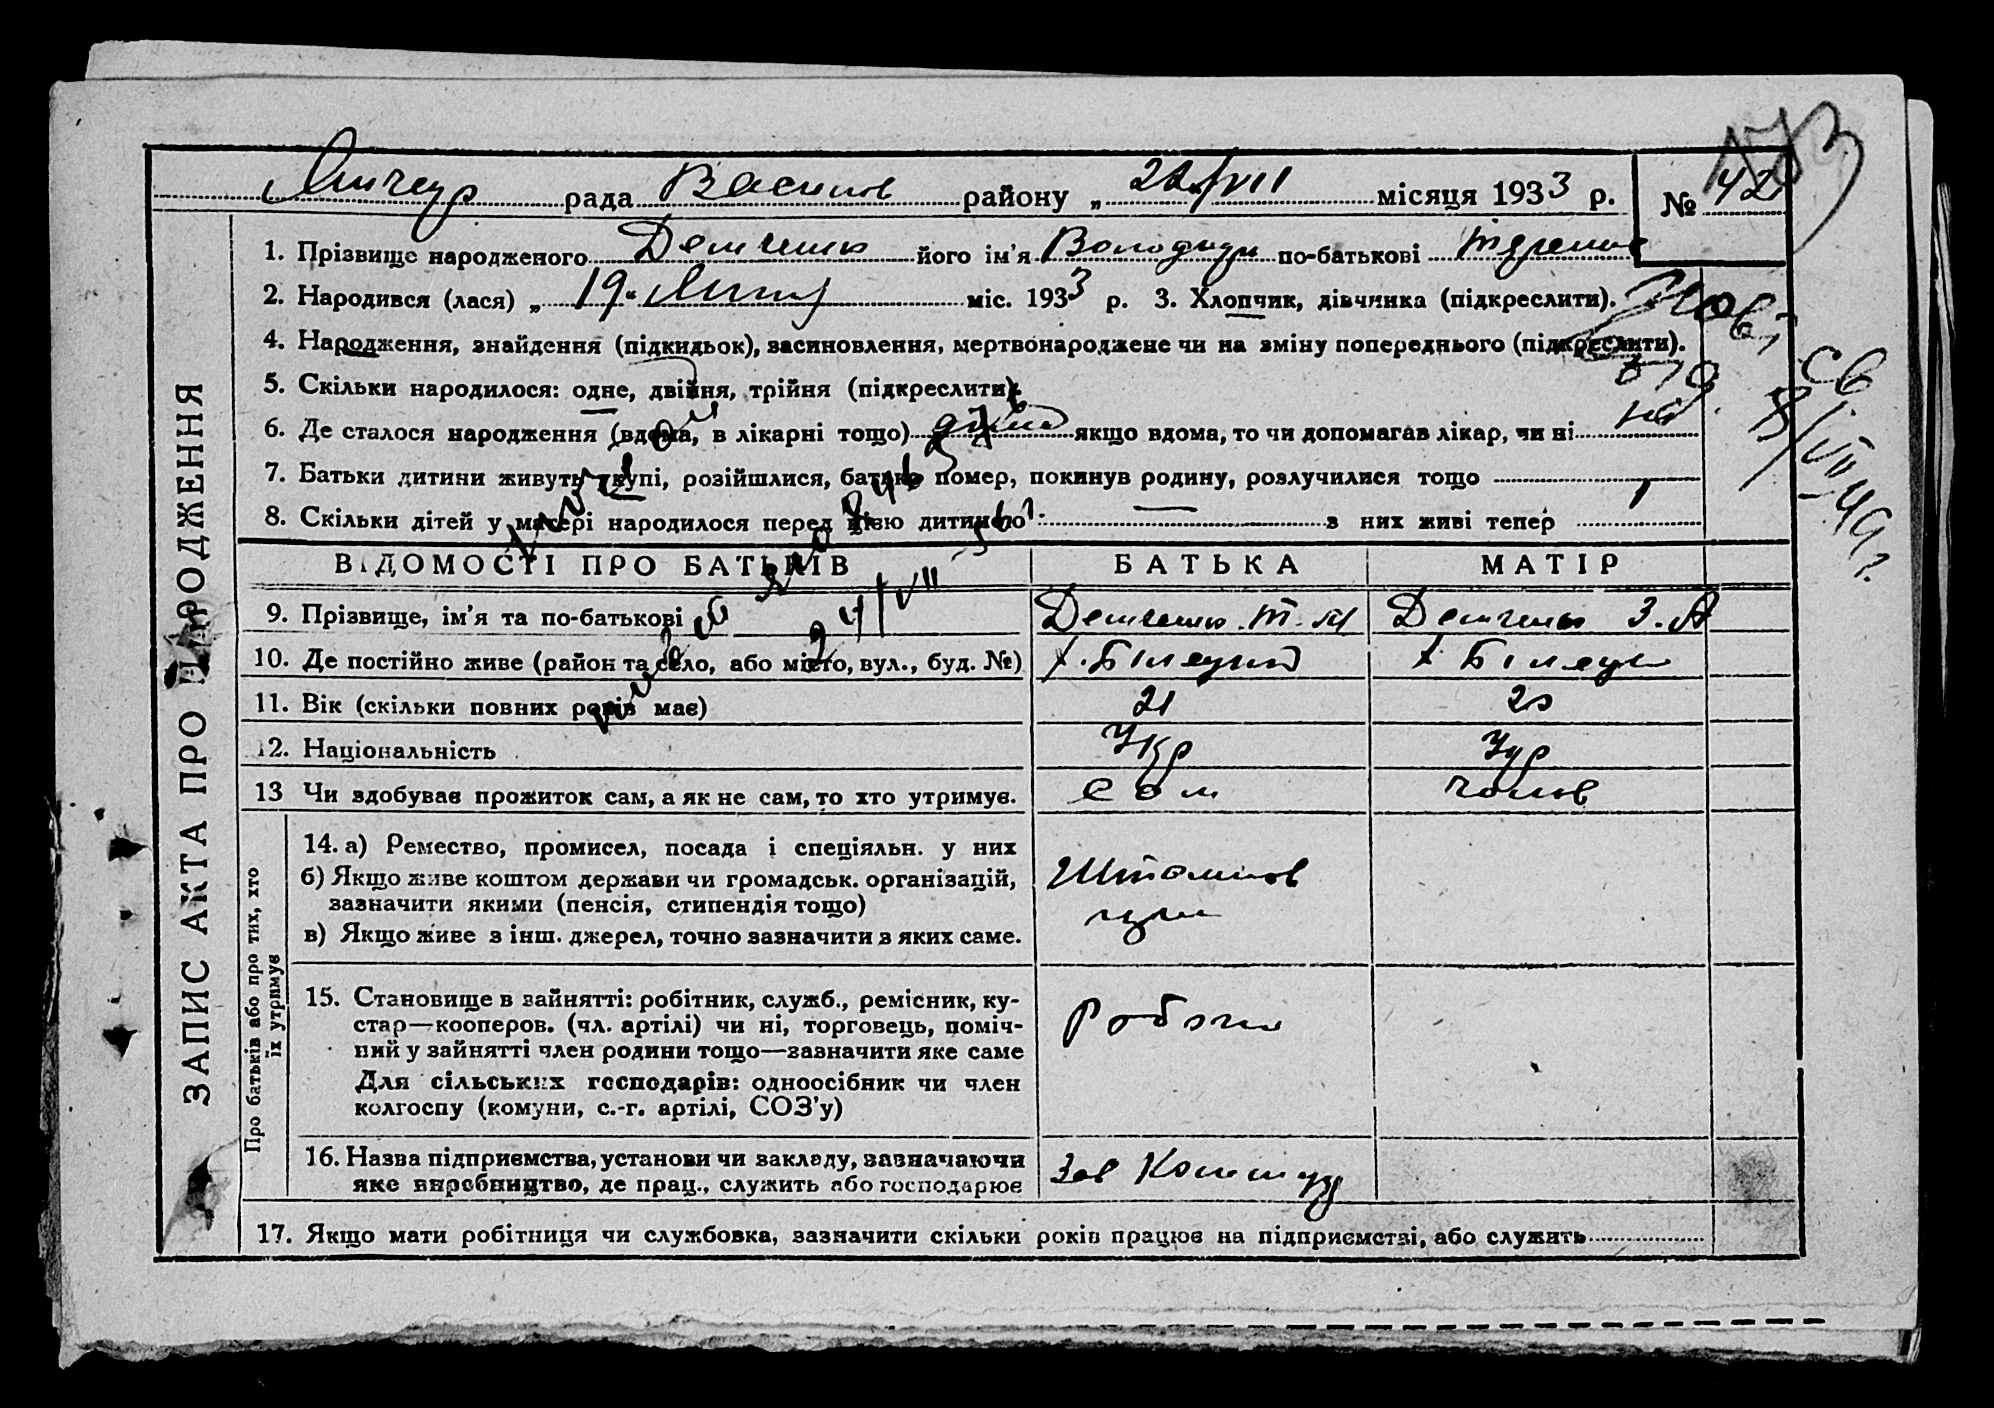 173
рада Васильків району „ 22/VII місяця 1933 р. № 42
1. Прізвище народженого Демченко його ім'я Володимир по-батькові
2. Народився (лася) „ 19 “ міс. 1933 р. 3. Хлопчик, дівчинка (підкреслити).
4. Народження, знайдення (підкидьок), засиновлення, мертвонароджене чи на зміну попереднього (підкреслити).
5. Скільки народилося: одне, двійня, трійня (підкреслити).
6. Де сталося народження (вдома, в лікарні тощо) дома якщо вдома, то чи допомагав лікар, чи ні ні
7. Батьки дитини живуть укупі, розійшлися, батько помер, покинув родину, розлучилися тощо
8. Скільки дітей у матері народилося перед цією дитиною — з них живі тепер 1
ВІДОМОСТІ ПРО БАТЬКІВ БАТЬКА МАТІР
9. Прізвище, ім'я та по-батькові Демченко Т. М Демченко З. А
10. Де постійно живе (район та село, або місто, вул., буд. №)
11. Вік (скільки повних років має) 21 20
12. Національність Укр Укр
13 Чи здобуває прожиток сам, а як не сам, то хто утримує. Сам чолов
14. а) Ремество, промисел, посада і спеціяльн. у них
б) Якщо живе коштом держави чи громадськ. організацій,
зазначити якими (пенсія, стипендія тощо)
в) Якщо живе з інш. джерел, точно зазначити з яких саме.
15. Становище в зайнятті: робітник, служб., ремісник, ку-
стар—кооперов. (чл. артілі) чи ні, торговець, поміч-
ний у зайнятті член родини тощо—зазначити яке саме
Для сільських господарів: одноосібник чи член
колгоспу (комуни, с.-г. артілі, СОЗ'у)
Робочи
16. Назва підприємства, установи чи закладу, зазначаючи
яке виробництво, де прац., служить або господарює
Зав
17. Якщо мати робітниця чи службовка, зазначити скільки років працює на підприємстві, або служить
ЗАПИС АКТА ПРО НАРОДЖЕННЯ
Про батьків або про тих, хто
їх утримує
24/VII